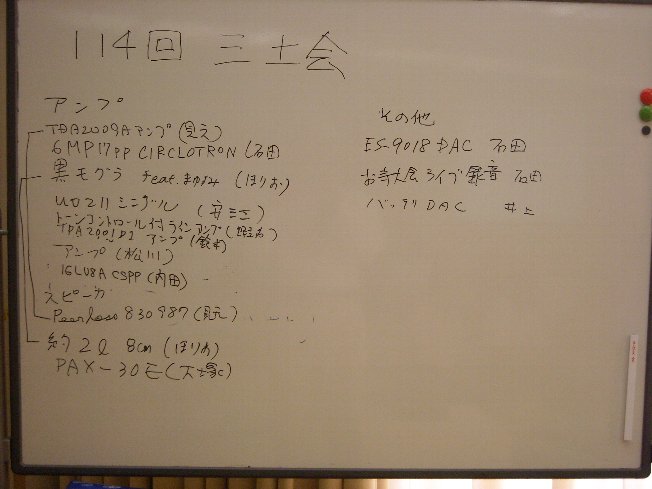 114回 三土会
アンプ
TDA2009Aアンプ(見元)
6MP17PP CIRCLOTRON (石田
黒モグラ feat.まゆみ (ほりお)
UD211シングル (安三)
トーンコントロール付ラインアンプ
TDA2001D1 アンプ (鈴木)
アンプ (松川)
16L08A CSPP (内田)
スピーカ
Peerless 830987 (見元)
約2ℓ 8cm (ほりお)
PAX-30E (大塚)
その他
ES-9018 DAC 石田
お寺大会ライブ録音 石田
バッテリDAC 井上